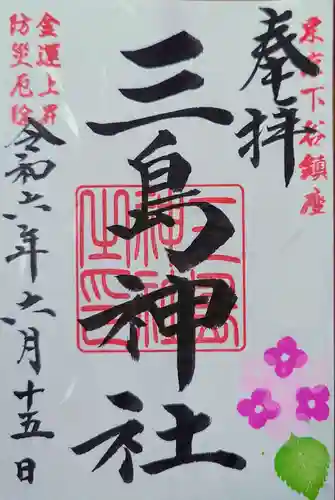 奉拝
東京下谷鎮座
三島神社
三島神社之印
金運上昇
防災厄除
令和六年六月十五日